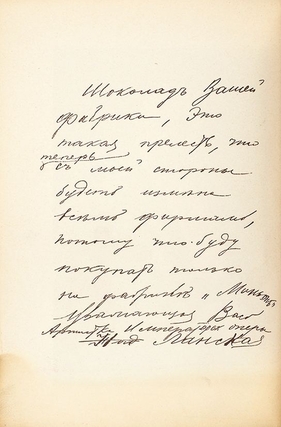 Шоколадъ Вашей
фабрики, это
такая прелесть, что
теперь
съ моей стороны
будетъ измѣна
всѣмъ фирмамъ,
потому что буду
покупать только
на фабрикѣ „
Уважающая Васъ
Артистка Императ. оперы
Линская